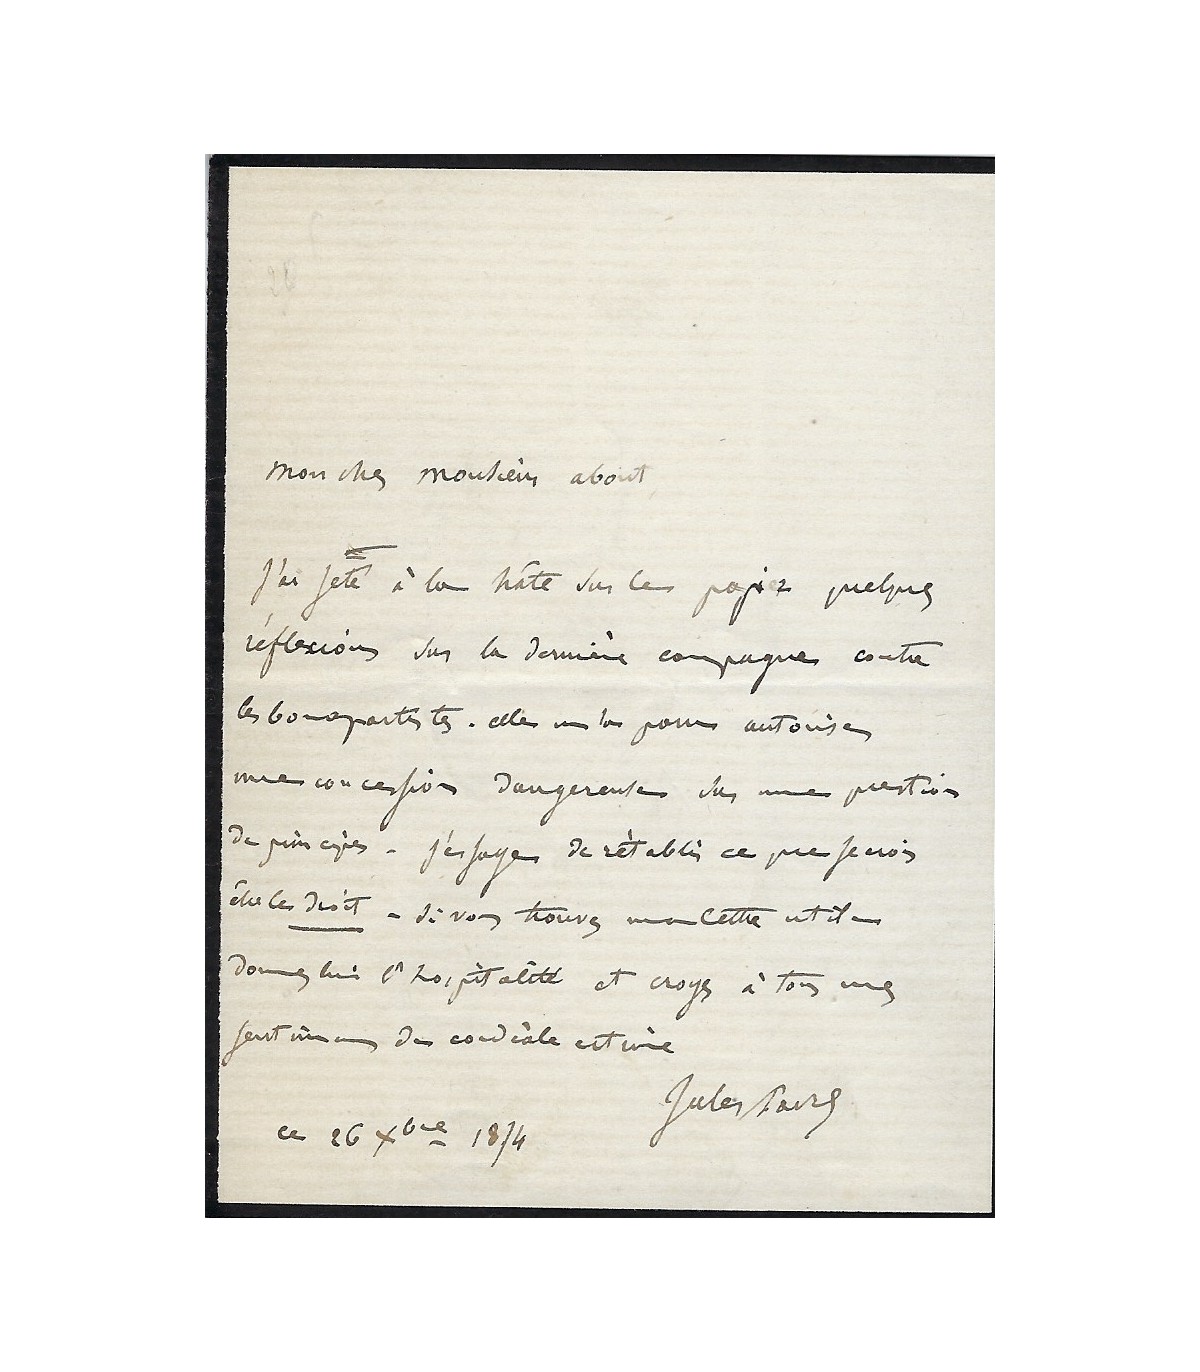 mon cher monsieur about
J'ai jeté à la hâte sur le papier quelques
réflexions sur la dernière campagne contre
les bonapartistes. elle m'a paru autoriser
une concession dangereuse sur une question
de principes - j'essaye de rétablir ce que je crois
être le droit - si vous trouvez ma lettre utile
donnez lui l'hospitalité et croyez à tous mes
sentimens de cordiale estime
Jules Favre
ce 26 Xbre 1874